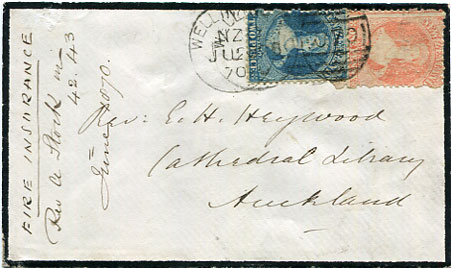 FIRE INSURANCE
Rev A Stock in
42.43
June 1870.
WELL
NZ
JU
70
Rev: E. H. Heywood
Cathedral Library
Auckland